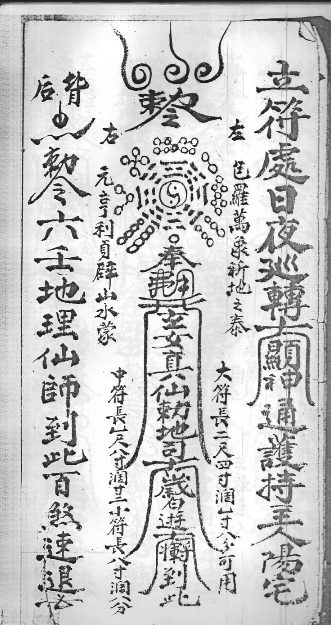 立符處日夜巡轉大顯神通護持主人陽宅
左
包羅萬象祈地之泰
大符長二尺四寸濶寸八分可用
敕令
奉
玄女真仙勅地司太歲到此
右
元亨利貞辟山水蒙
中符長尺八寸濶寸小符長八寸濶八分
背后
勅令六壬地理仙師到此百煞速退